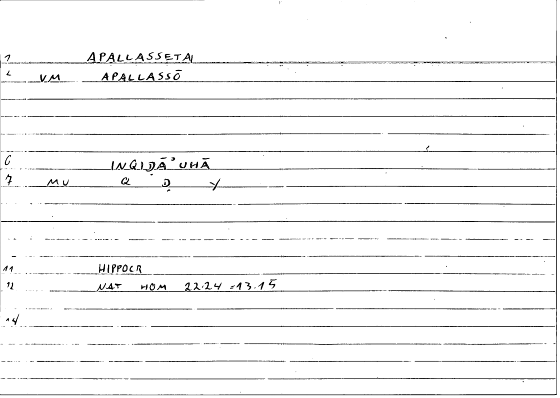 1 APALLASSETAI
2 VM APALLASSŌ
6 INQIḌĀʾUHĀ
7 MU Q Ḍ Y
11 HIPPOCR
12 NAT HOM 22.24 = 13.15
14